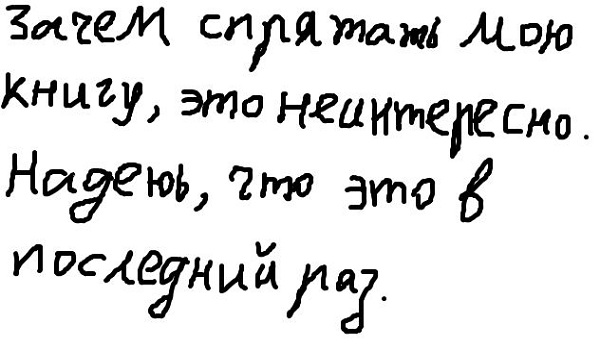 Зачем спрятать мою
книгу, это неинтересно.
Надеюь, что это в
последний раз.